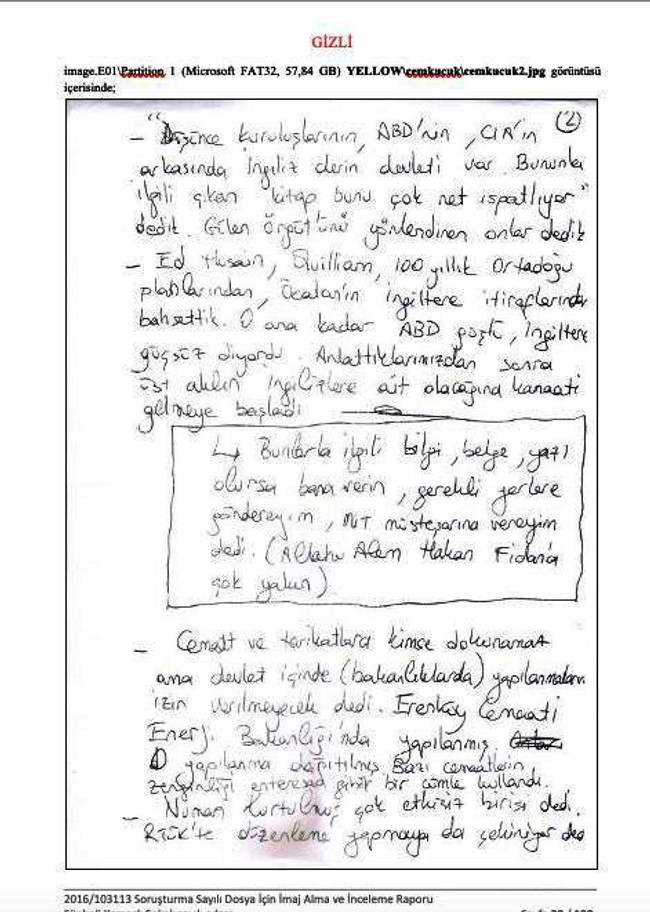 GİZLİ
image.E01\Partition 1 (Microsoft FAT32, 57,84 GB) YELLOW\cemkucuk\cemkucuk2.jpg görüntüsü
içerisinde;
(2)
- "Düşünce kuruluşlarının, ABD'nin, CIA'in
arkasında İngiliz derin devleti var. Bununla
ilgili çıkan kitap bunu çok net ispatlıyor"
dedik. Gülen Örgütünü yönlendiren onlar dedik
- Ed Husain, Quilliam, 100 yıllık Ortadoğu
planlarından, Öcalan'ın İngiltere itiraflarından
bahsettik. O ana kadar ABD güçlü, İngiltere
güçsüz diyordu. Anlattıklarımızdan sonra
üst aklın İngilizlere ait olacağına kanaati
gelmeye başladı
↳ Bunlarla ilgili bilgi, belge, yazı
olursa bana verin, gerekli yerlere
göndereyim, MİT müsteşarına vereyim
dedi. (Allahu Alem Hakan Fidan'a
çok yakın)
- Cemaat ve tarikatlara kimse dokunamaz
ama devlet içinde (bakanlıklarda) yapılanmaları
izin verilmeyecek dedi. Erenköy Cemaati
Enerji Bakanlığı'nda yapılanmış
O yapılanma dağıtılmış Bazı cemaatlerin
zenginliği enteresan gibi bir cümle kullandı.
- Numan Kurtulmuş çok etkisiz birisi dedi.
RTÜK'te düzenleme yapmaya da çekiniyor dedi
2016/103113 Soruşturma Sayılı Dosya İçin İmaj Alma ve İnceleme Raporu